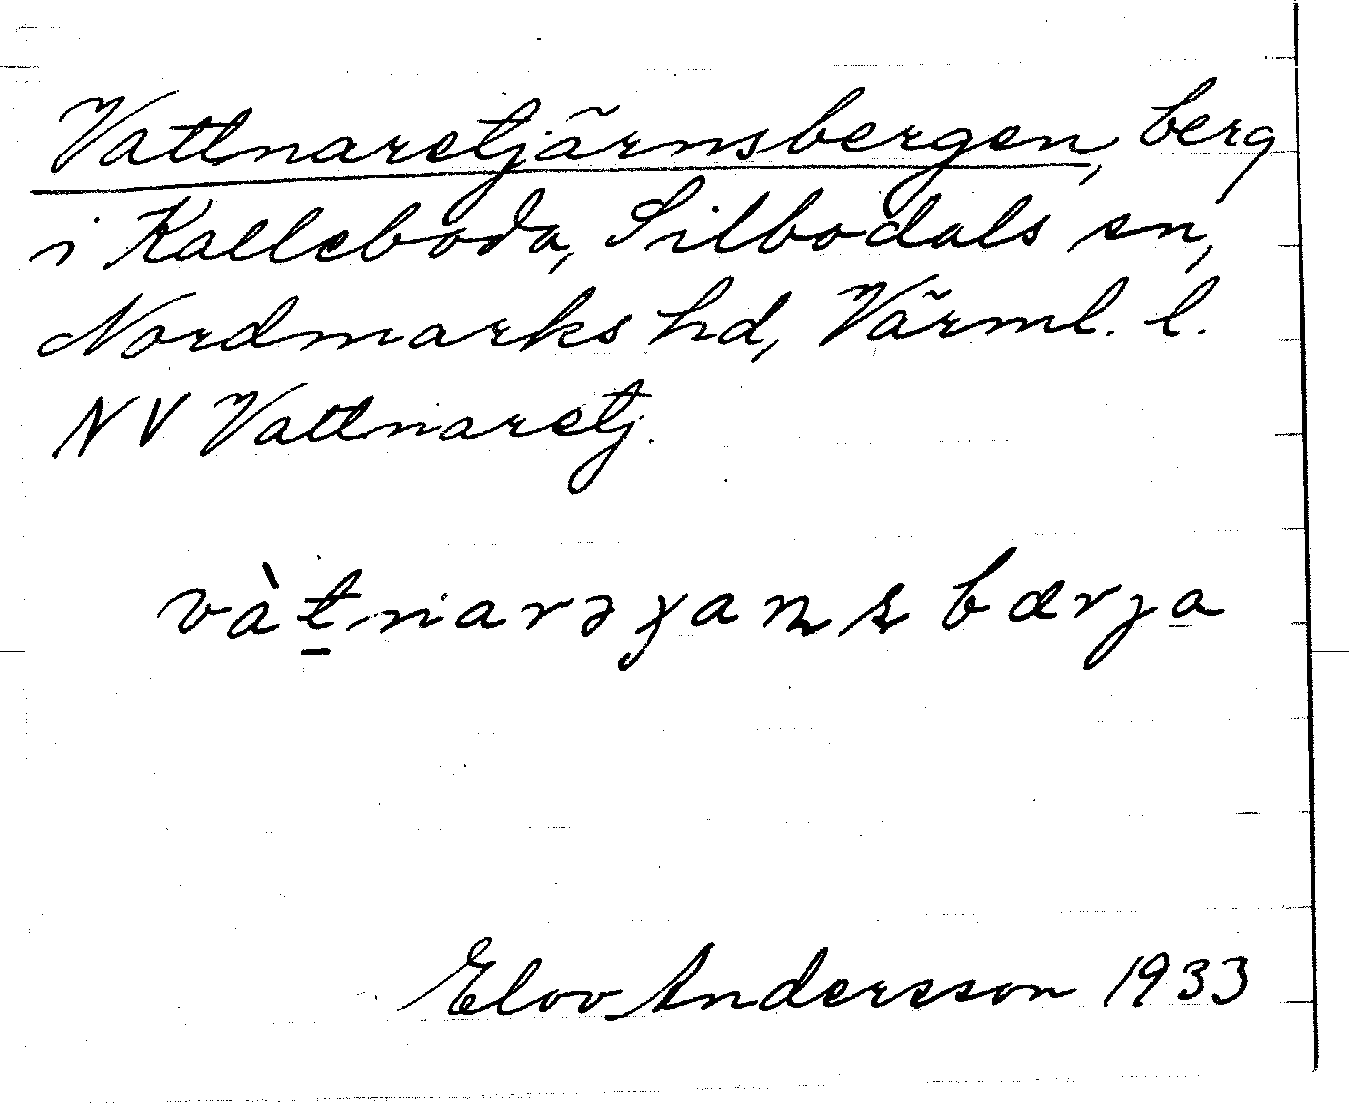 Vattnaretjärnsbergen, berg
i Kalleboda, Silbodals sn,
Nordmarks hd, Värml. l.
NV Vattnaretj.
Elov Andersson 1933